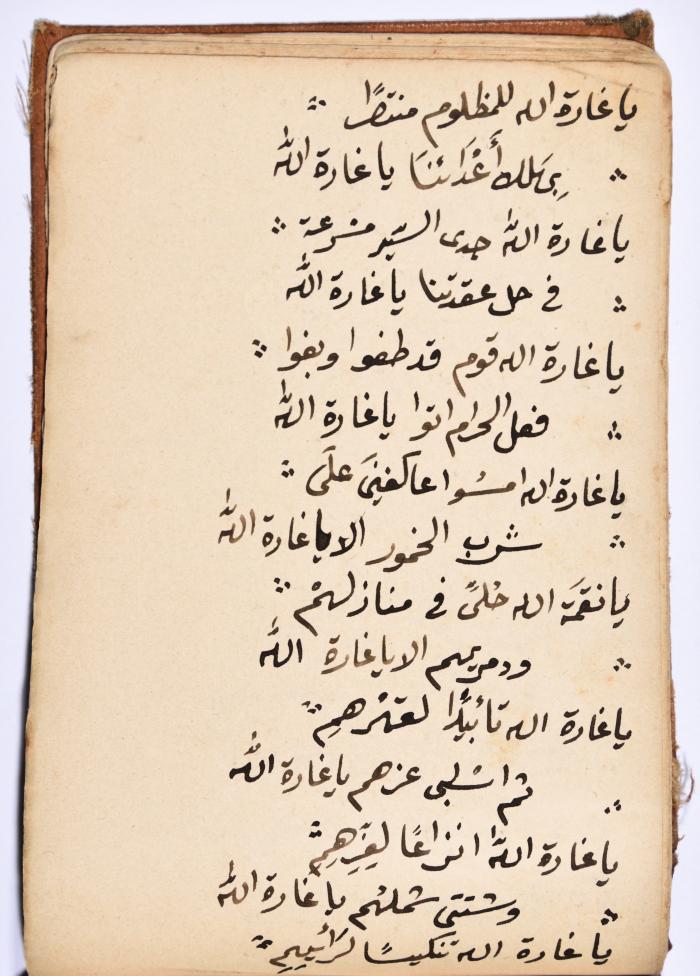 ياغارة الله للمظلوم منتصرًا
بهلاك أَعْدَائنَا ياغارة اللّٰه
ياغارة اللّٰه جدى السّير مسرعة
فى حل عقدتنا ياغارة اللّٰه
ياغارة الله قوم قد طغوا وبغوا
فعل الحرام اتوا ياغارة اللّٰه
ياغارة الله امسُوا عاكفينَ علَى
شرب الخمور الا ياغارة اللّٰه
يانقمَة الله حُلىِّ فى منازلهمْ
ودمريهم الا ياغارة اللّٰه
ياغارة الله تائبيدًا لقهْرهمِ
ثم اسْلبى عزهم ياغارة اللّٰه
ياغارة اللّٰه انزاعًا لعِزِّهِمِ
وشتتى شملهُم ياغارة اللّٰه
ياغارة الله تنكيسًا لرَائيِهِمِ